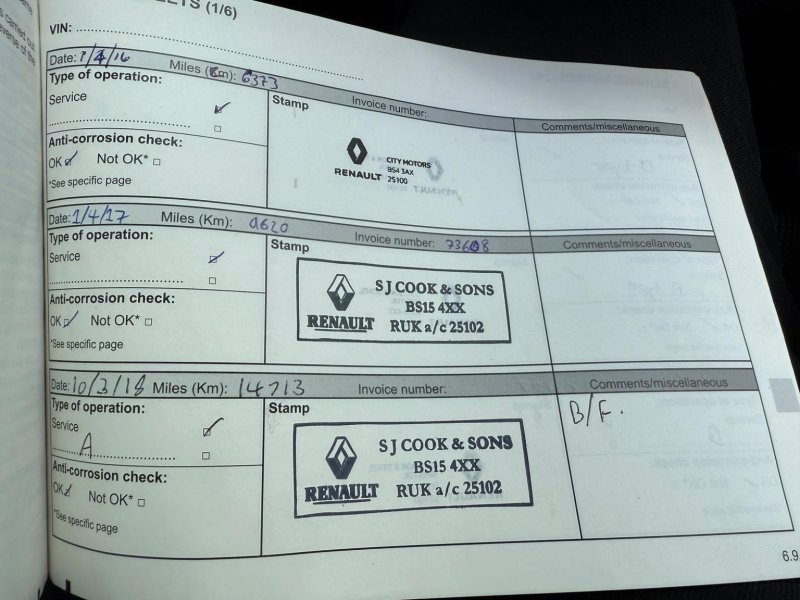 EETS (1/6)
carried out
everse of the
VIN:
Date: 7/4/16 Miles (Km): 6373
Type of operation:
Service
Anti-corrosion check:
OK Not OK*
*See specific page
Stamp
Invoice number:
RENAULT
CITY MOTORS
BS4 3AX
25100
Comments/miscellaneous
Date: 1/4/17 Miles (Km): 9620
Type of operation:
Service
Anti-corrosion check:
OK Not OK*
*See specific page
Stamp
Invoice number: 73608
RENAULT
SJ COOK & SONS
BS15 4XX
RUK a/c 25102
Comments/miscellaneous
Date: 10/3/18 Miles (Km): 14713
Type of operation:
Service
A
Anti-corrosion check:
OK Not OK*
*See specific page
Stamp
Invoice number:
RENAULT
SJ COOK & SONS
BS15 4XX
RUK a/c 25102
Comments/miscellaneous
B/F.
6.9